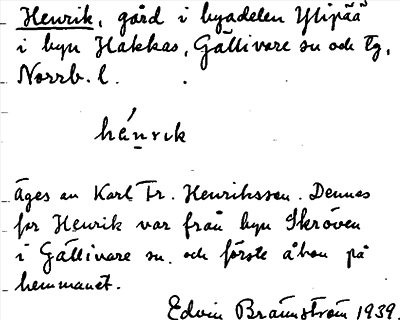 Henrik, gård i byadelen Ylipää
i byn Hakkas, Gällivare sn och tg,
Norrb. l.
hánrɩk
äges av Karl Fr. Henriksson. Dennes
far Henrik var från byn Skröven
i Gällivare sn. och förste åbon på
hemmanet.
Edvin Brännström 1939.